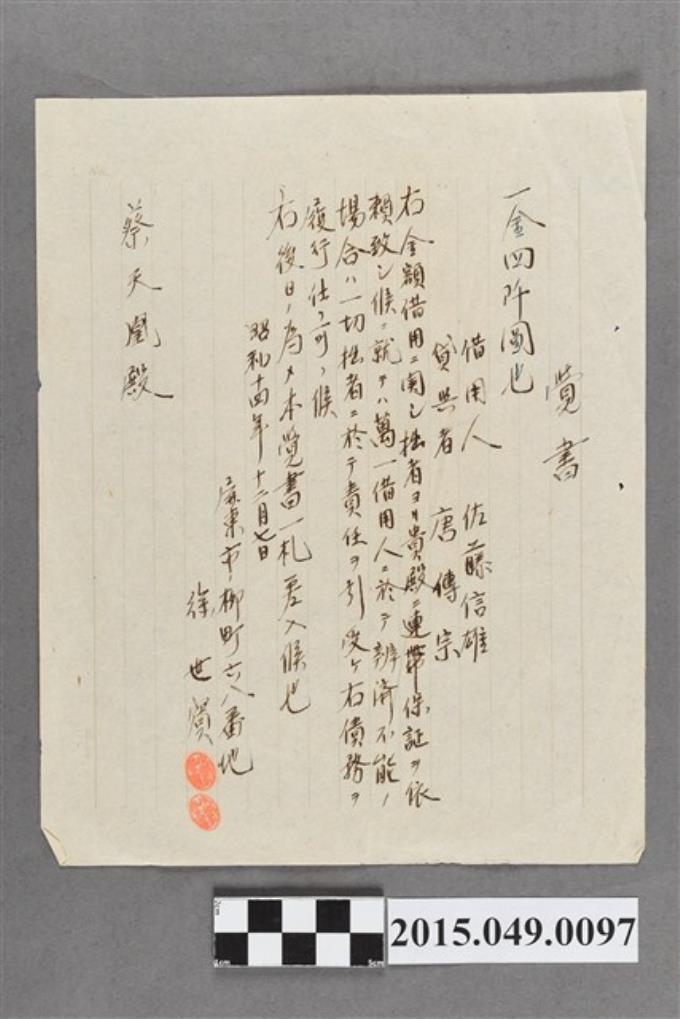 覚書
一金四阡圓也
借用人 佐藤信雄
貸與者 唐傳宗
右金額借用ニ関シ拙者ヨリ貴殿ニ連帯保証ヲ依
頼致シ候ニ就テハ萬一借用人ニ於テ辨済不能ノ
場合ハ一切拙者ニ於テ責任ヲ引受ケ右債務ヲ
履行仕ル可ク候
右後日ノ為メ本覚書一札差入候也
昭和十四年十二月七日
屏東市柳町六八番地
徐世賓
蔡天凰殿
2cm
1cm
5cm
2015.049.0097